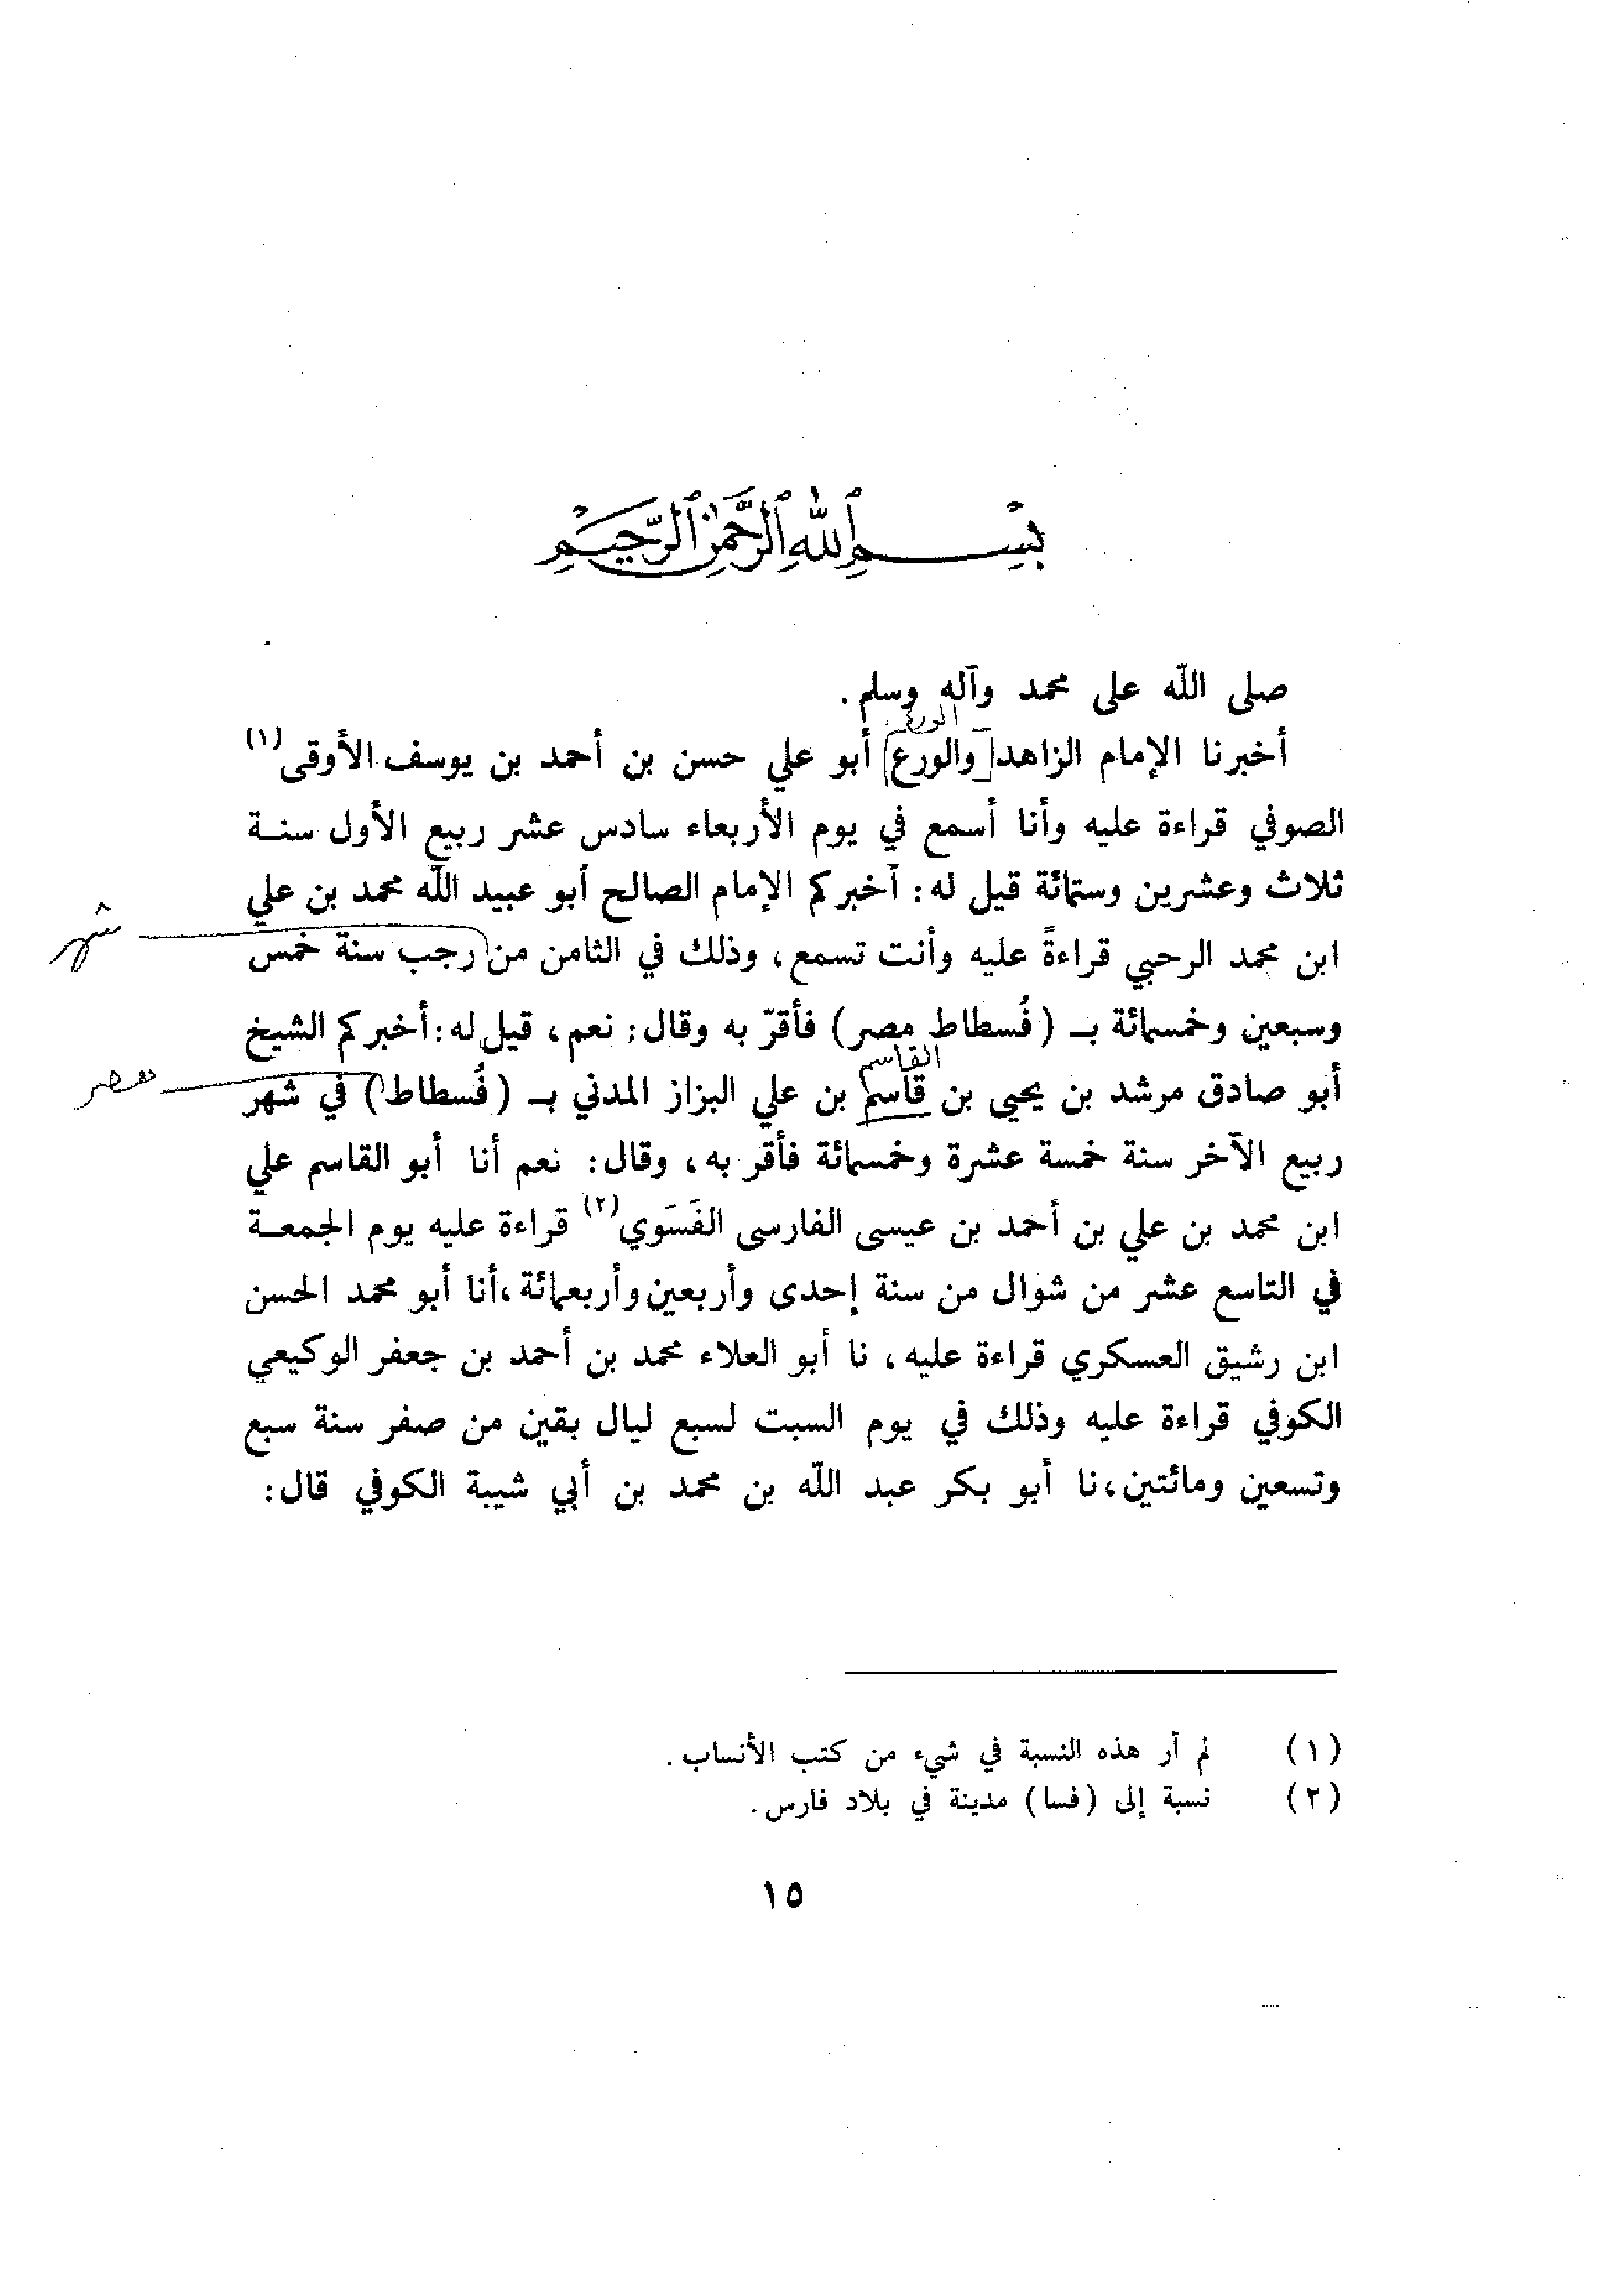 بِسْمِ ٱللَّهِ ٱلرَّحْمَٰنِ ٱلرَّحِيمِ
صلى الله على محمد وآله وسلم .
الورع
أخبرنا الإمام الزاهد [والورع] أبو علي حسن بن أحمد بن يوسف الأوقى (١)
الصوفي قراءة عليه وأنا أسمع في يوم الأربعاء سادس عشر ربيع الأول سنة
ثلاث وعشرين وستمائة قيل له : أخبركم الإمام الصالح أبو عبيد الله محمد بن علي
ابن محمد الرحبي قراءةً عليه وأنت تسمع ، وذلك في الثامن من رجب سنة خمس
شهر
وسبعين وخمسمائة بـ (فُسطاط مصر) فأقرّ به وقال : نعم ، قيل له : أخبركم الشيخ
القاسم
أبو صادق مرشد بن يحيى بن قاسم بن علي البزاز المدني بـ (فُسطاط) في شهر
مصر
ربيع الآخر سنة خمسة عشرة وخمسمائة فأقر به ، وقال : نعم أنا أبو القاسم علي
ابن محمد بن علي بن أحمد بن عيسى الفارسى الفَسَوي (٢) قراءة عليه يوم الجمعة
في التاسع عشر من شوال من سنة إحدى وأربعين وأربعمائة ، أنا أبو محمد الحسن
ابن رشيق العسكري قراءة عليه ، نا أبو العلاء محمد بن أحمد بن جعفر الوكيعي
الكوفي قراءة عليه وذلك في يوم السبت لسبع ليال بقين من صفر سنة سبع
وتسعين ومائتين ، نا أبو بكر عبد الله بن محمد بن أبي شيبة الكوفي قال :
(١) لم أر هذه النسبة في شيء من كتب الأنساب .
(٢) نسبة إلى (فسا) مدينة في بلاد فارس .
١٥